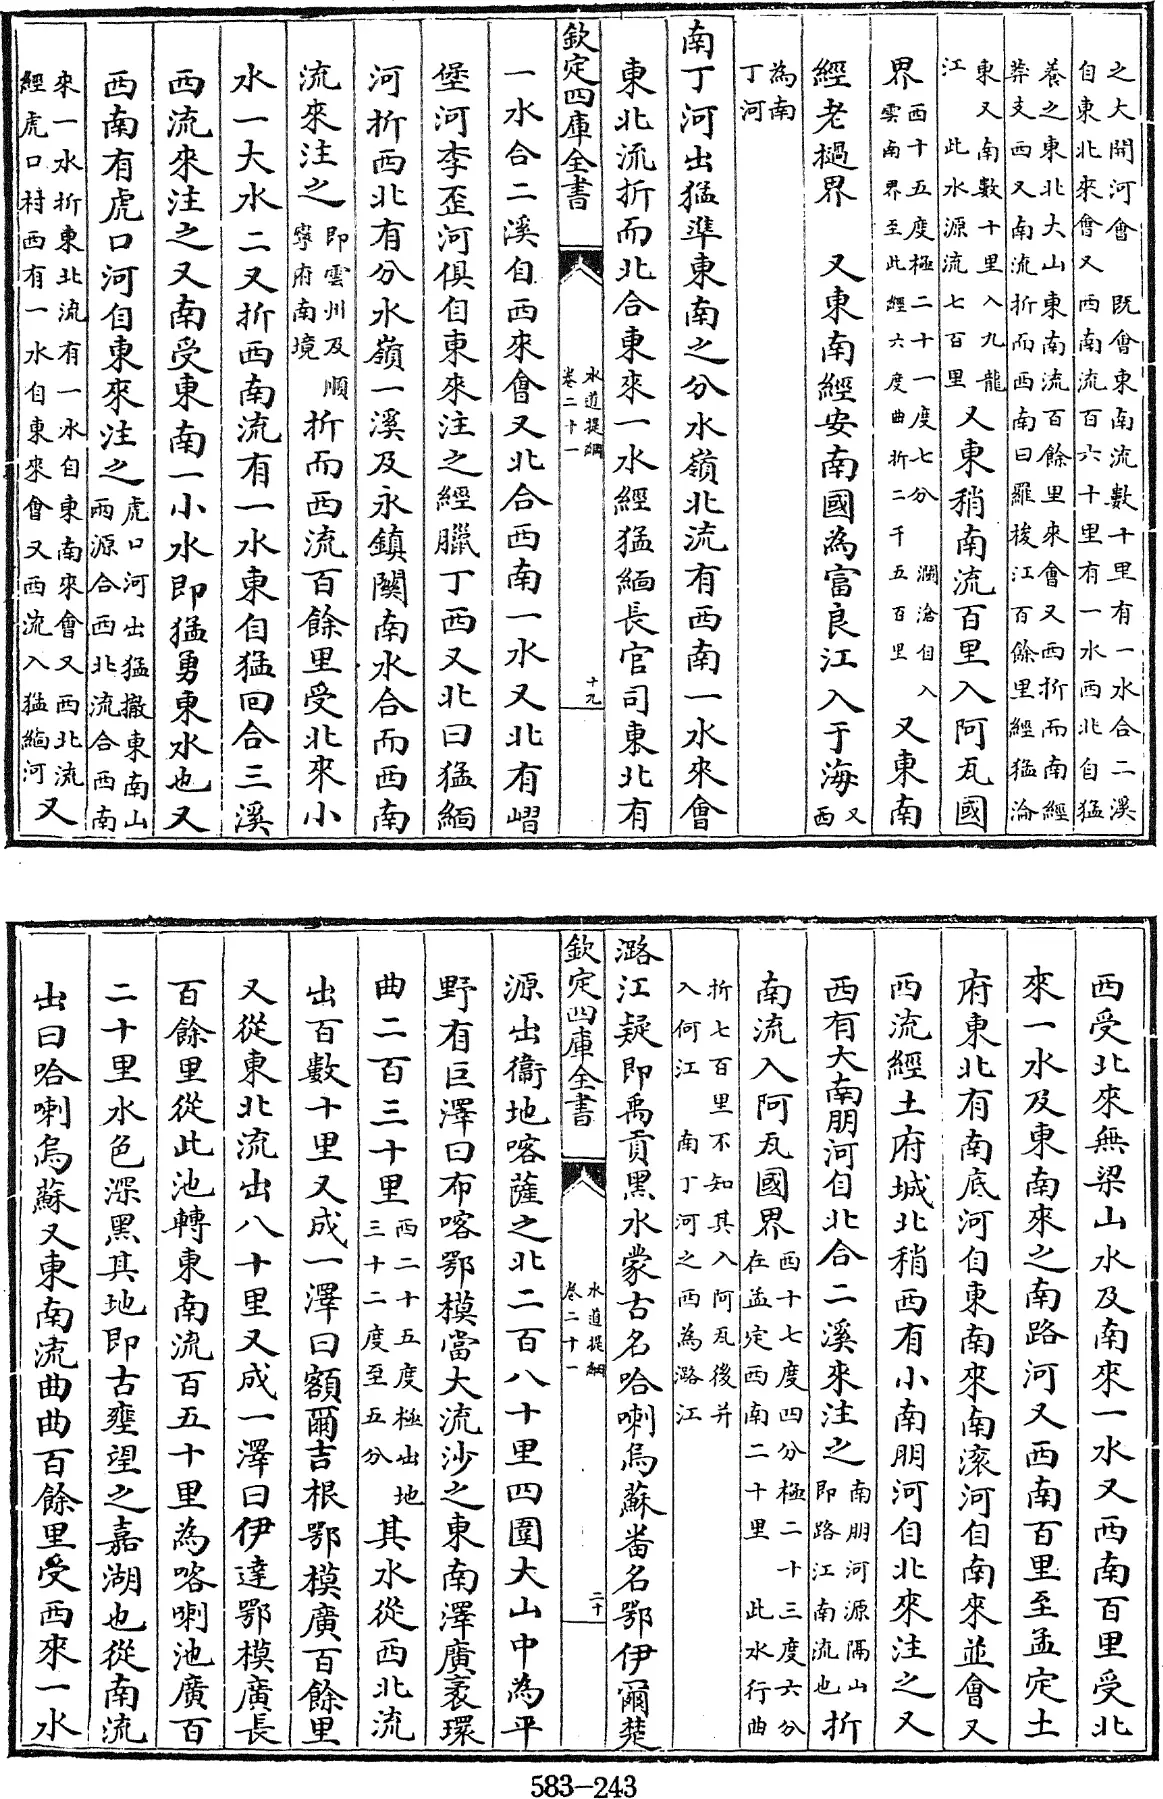 之大開河會　既會東南流數十里有一水合二溪
自東北來會又西南流百六十里有一水西北自猛
養之東北大山東南流百餘里來會又西折而南經
莽支西又南流折而西南曰羅梭江百餘里經猛淪
東又南數十里入九龍
江　此水源流七百里
又東稍南流百里入阿瓦國
界
西十五度極二十一度七分　瀾滄自入
雲南界至此經六度曲折二千五百里
又東南
經老撾界　又東南經安南國為富良江入于海
又
西
為南
丁河
南丁河出猛準東南之分水嶺北流有西南一水來會
東北流折而北合東來一水經猛緬長官司東北有
欽定四庫全書
水道提綱
卷二十一
十九
一水合二溪自西來會又北合西南一水又北有嶍
堡河李歪河俱自東來注之經臘丁西又北曰猛緬
河折西北有分水嶺一溪及永鎮關南水合而西南
流來注之
即雲州及　順
寧府南境
折而西流百餘里受北來小
水一大水二又折西南流有一水東自猛回合三溪
西流來注之又南受東南一小水即猛勇東水也又
西南有虎口河自東來注之
虎口河出猛撒東南山
兩源合西北流合西南
來一水折東北流有一水自東南來會又西北流
經虎口村西有一水自東來會又西流入猛緬河
又
西受北來無梁山水及南來一水又西南百里受北
來一水及東南來之南路河又西南百里至孟定土
府東北有南底河自東南來南滚河自南來並會又
西流經土府城北稍西有小南朋河自北來注之又
西有大南朋河自北合二溪來注之
南朋河源隔山
即路江南流也
折
南流入阿瓦國界
西十七度四分極二十三度六分
在孟定西南二十里　此水行曲
折七百里不知其入阿瓦後并
入何江　南丁河之西為潞江
潞江疑即禹貢黑水蒙古名哈喇烏蘇番名鄂伊爾楚
欽定四庫全書
水道提綱
卷二十一
二十
源出衞地喀薩之北二百八十里四圍大山中為平
野有巨澤曰布喀鄂模當大流沙之東南澤廣袤環
曲二百三十里
西二十五度極出地
三十二度至五分
其水從西北流
出百數十里又成一澤曰額爾吉根鄂模廣百餘里
又從東北流出八十里又成一澤曰伊達鄂模廣長
百餘里從此池轉東南流百五十里為喀喇池廣百
二十里水色深黑其地即古雍望之嘉湖也從南流
出曰哈喇烏蘇又東南流曲曲百餘里受西來一水
583-243